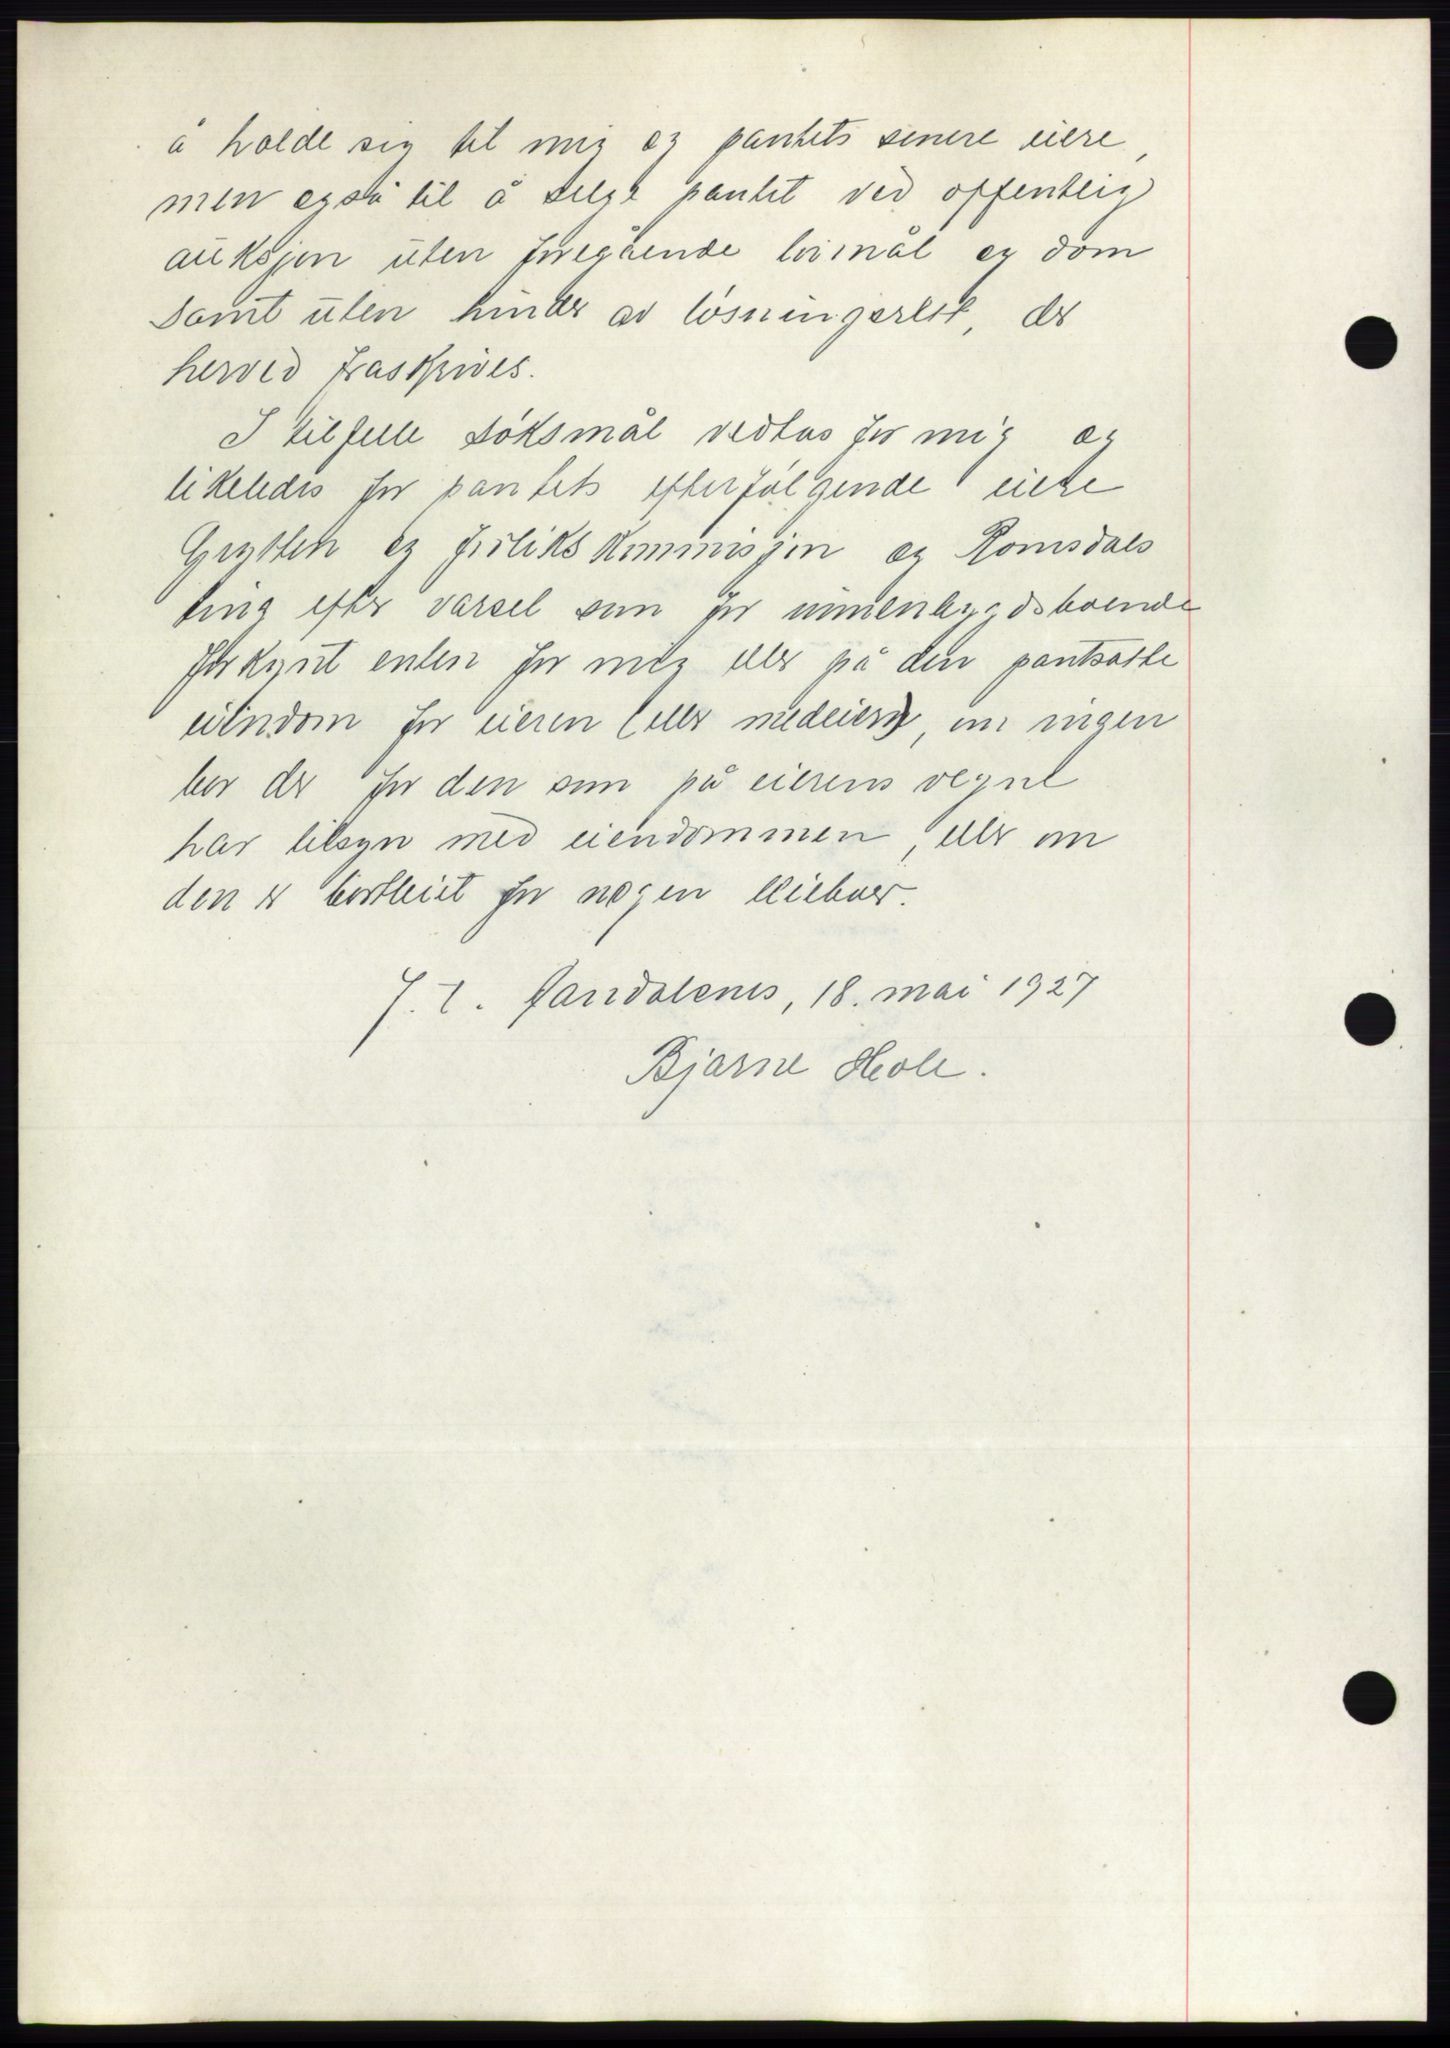 å holde sig til mig og pantets senere eiere,
men også til å selge pantet ved offentlig
auksjon uten foregående lovmål og dom
samt uten hinder av løsningsrett, der
herved fraskrives.
I tilfelle søksmål vedtas for mig og
likeledes for pantets efterfølgende eiere
Grytten og forlikskommisjon og Romsdals
ting efter varsel som for innenbygdsboende
forkynt enten for mig eller på den pantsatte
eiendom for eieren (eller medeiere), om ingen
bor der for den som på eierens vegne
har tilsyn med eiendommen, eller om
den er bortleiet for nogen leieboer.
Åandalsnes, 18. mai 1927
Bjarne Hole.